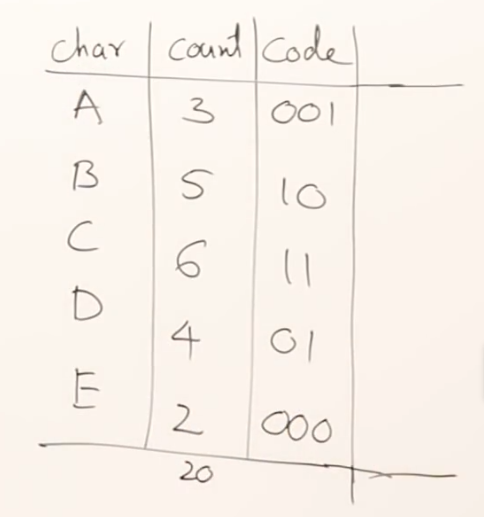 Char Count Code
A 3 001
B 5 10
C 6 11
D 4 01
E 2 000
20